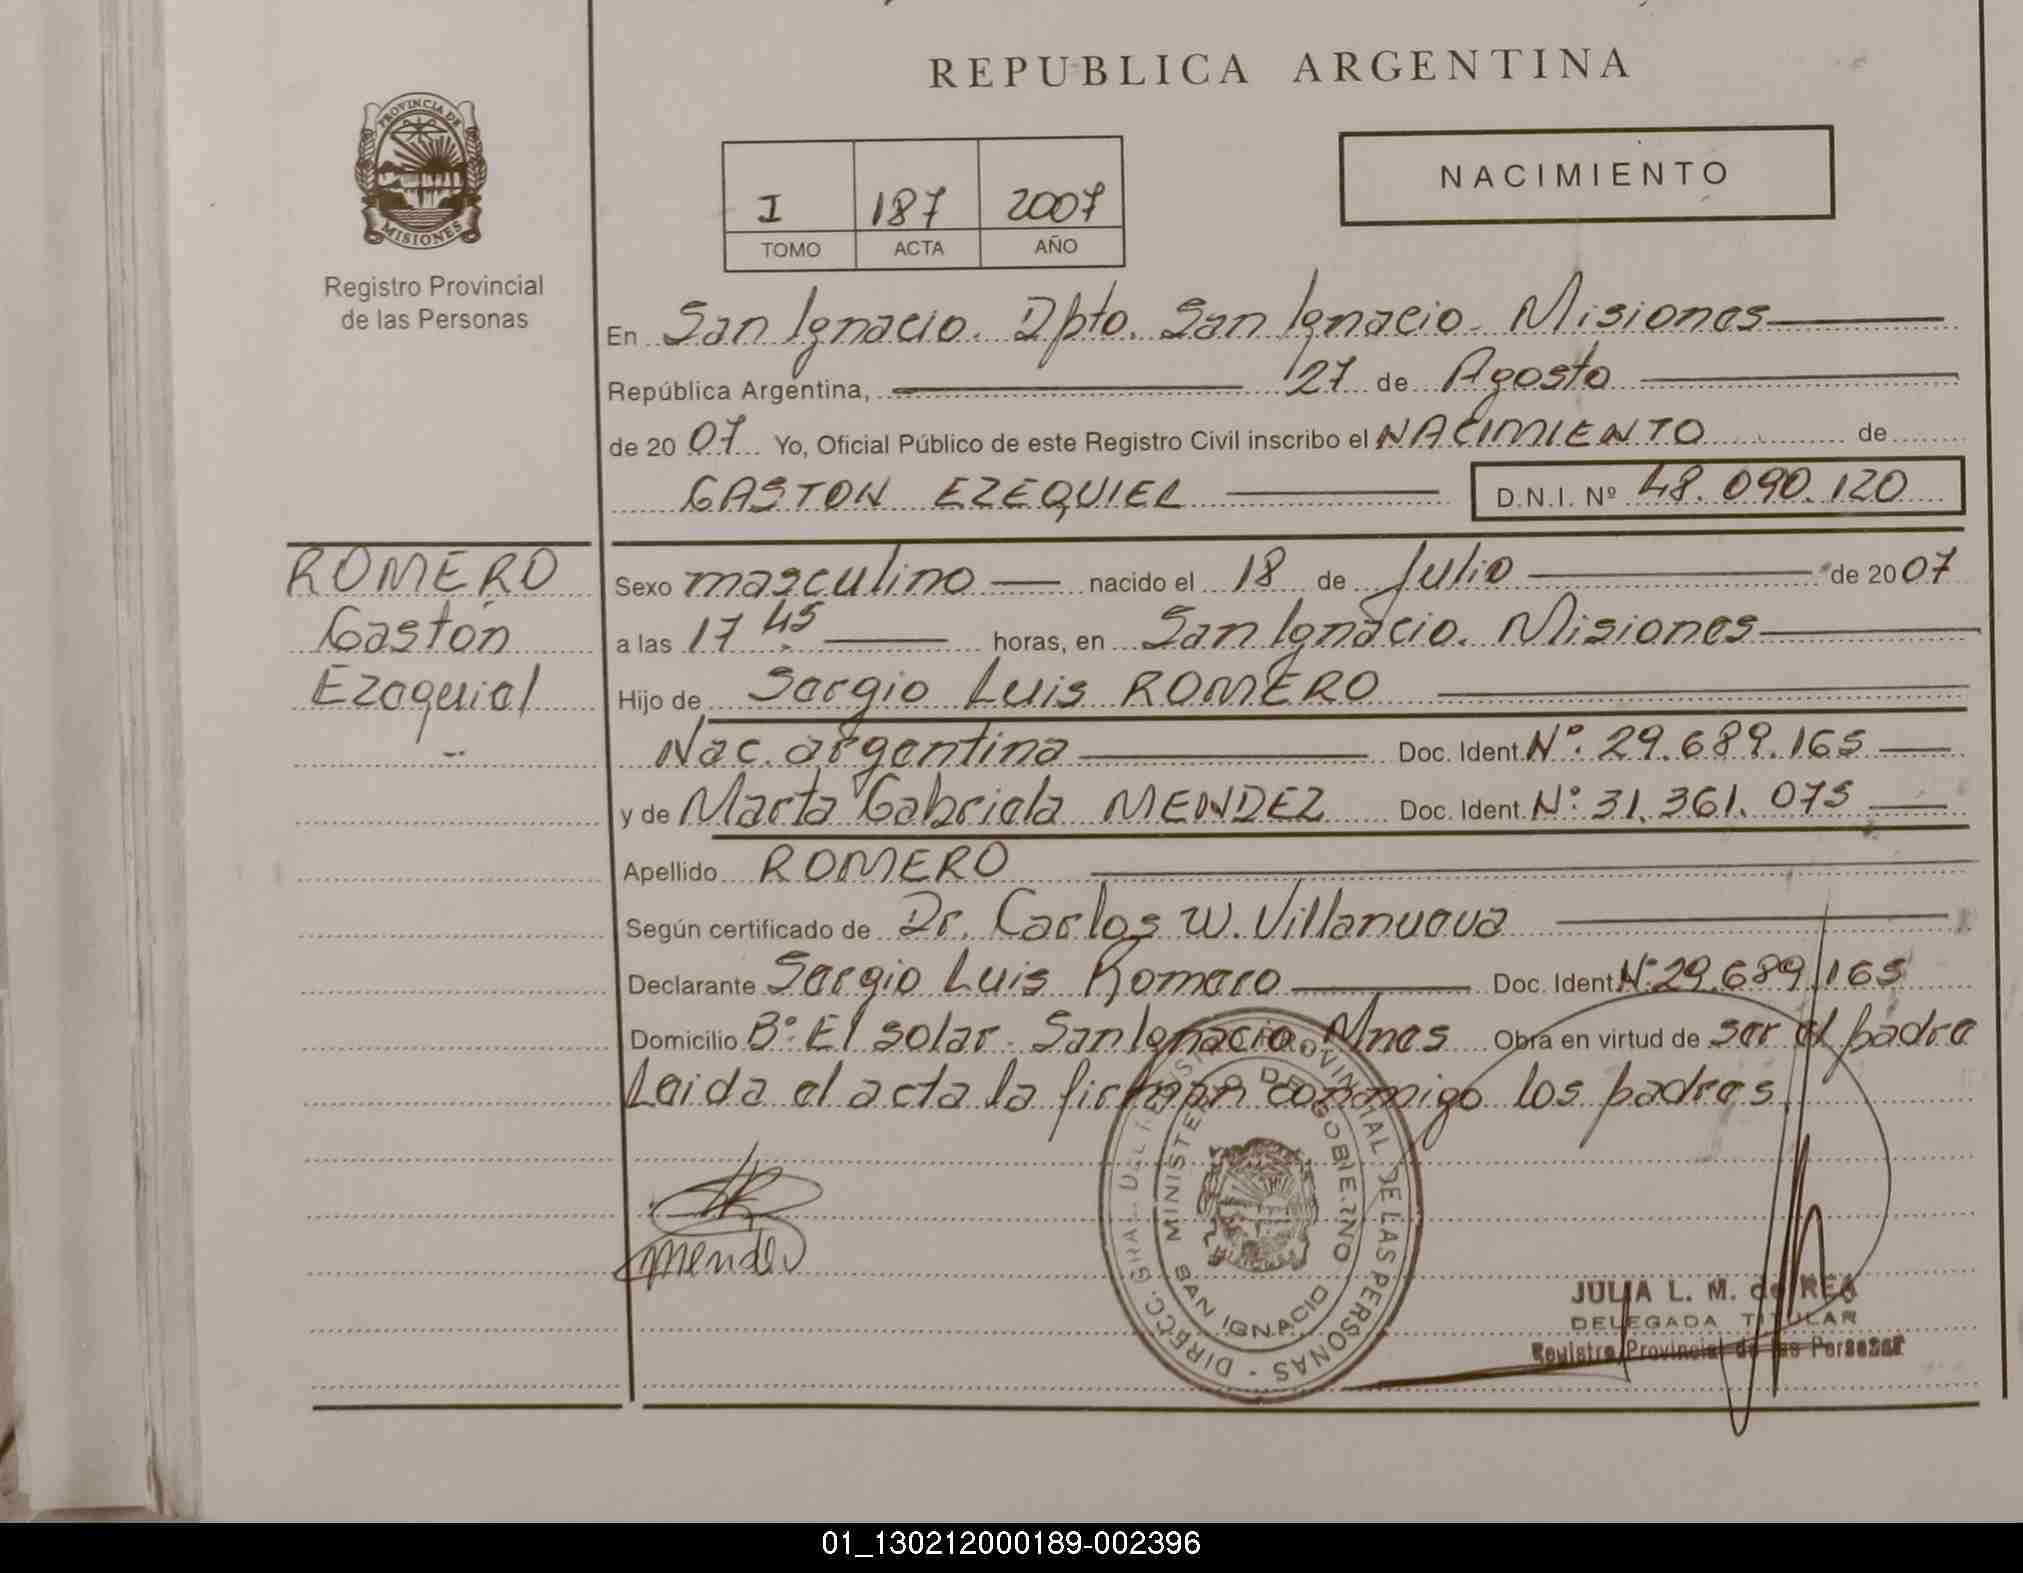 REPUBLICA ARGENTINA
PROVINCIA DE
MISIONES
Registro Provincial
de las Personas
I 187 2007
TOMO ACTA AÑO
NACIMIENTO
En San Ignacio. Dpto. San Ignacio. Misiones
República Argentina, 27 de Agosto
de 20 07 Yo, Oficial Público de este Registro Civil inscribo el NACIMIENTO de
GASTON EZEQUIEL D.N.I. Nº 48.090.120
ROMERO
Gastón
Ezequiel
Sexo masculino nacido el 18 de Julio de 2007
a las 17 45 horas, en San Ignacio. Misiones
Hijo de Sergio Luis ROMERO
Nac. argentina Doc. Ident. Nº: 29.689.165
y de Marta Gabriela MENDEZ Doc. Ident. Nº: 31.361.075
Apellido ROMERO
Según certificado de Dr. Carlos W. Villanueva
Declarante Sergio Luis Romero Doc. Ident. Nº 29.689.165
Domicilio Bº: El solar. San Ignacio. Mnes Obra en virtud de ser el padre
Leida el acta la firman conmigo los padres.
Mendez
DIRECC. GRAL. DEL REGISTRO PROVINCIAL DE LAS PERSONAS
MINISTERIO DE GOBIERNO
SAN IGNACIO
JULIA L. M. de REA
DELEGADA TITULAR
Registro Provincial de las Personas
01_130212000189-002396